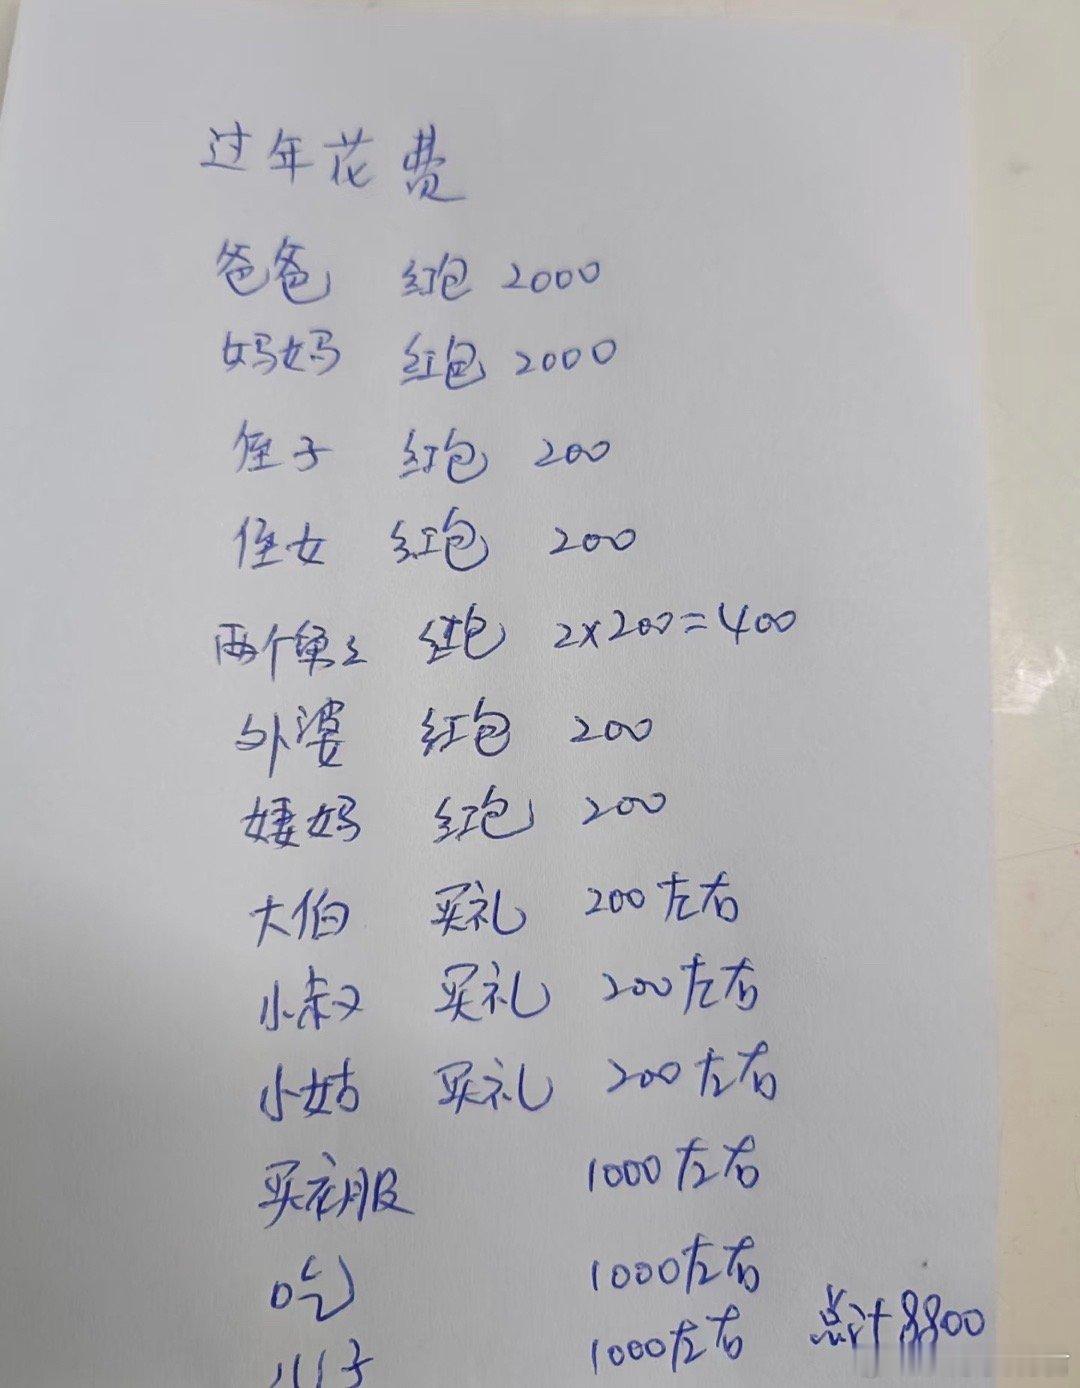 过年花费
爸爸 红包 2000
妈妈 红包 2000
侄子 红包 200
侄女 红包 200
两个 红包 2×200=400
外婆 红包 200
婆妈 红包 200
大伯 买礼 200左右
小叔 买礼 200左右
小姑 买礼 200左右
买衣服 1000左右
吃 1000左右
儿子 1000左右 总计8800